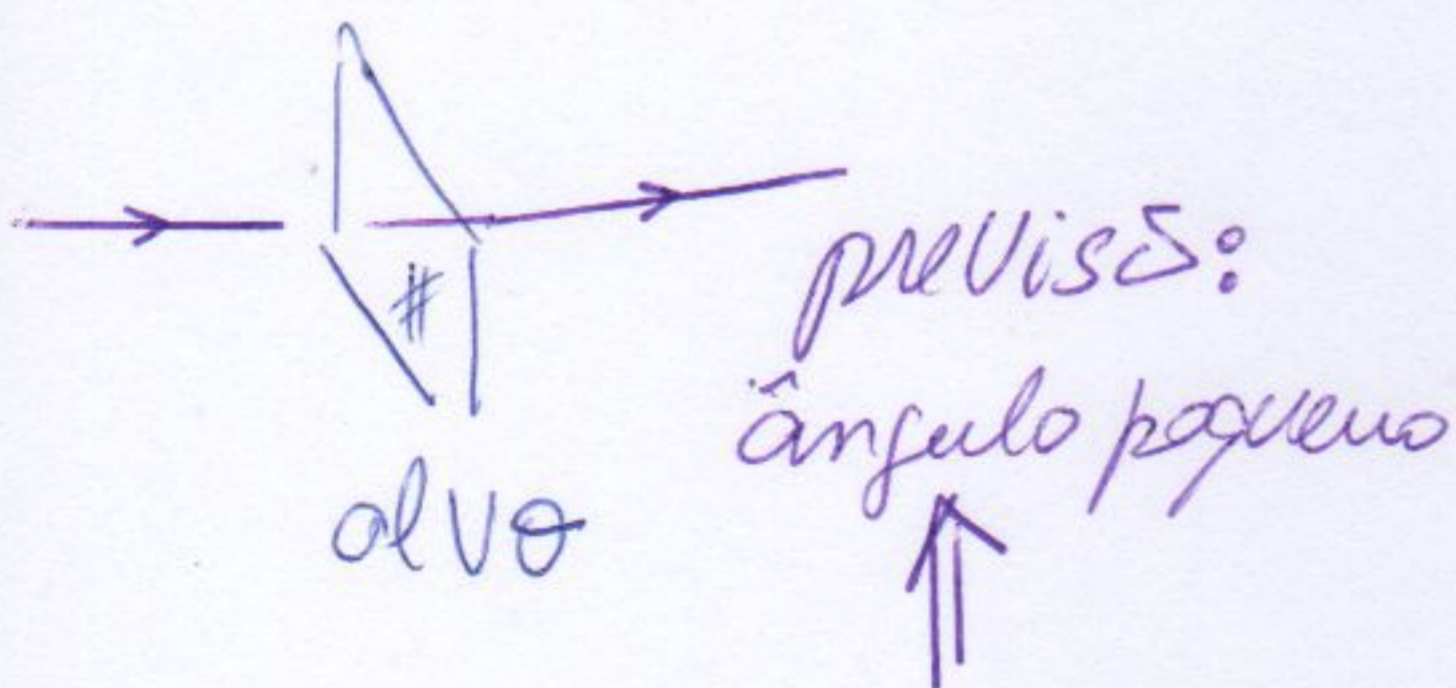 #
alvo
previsõ:
ângulo pequeno